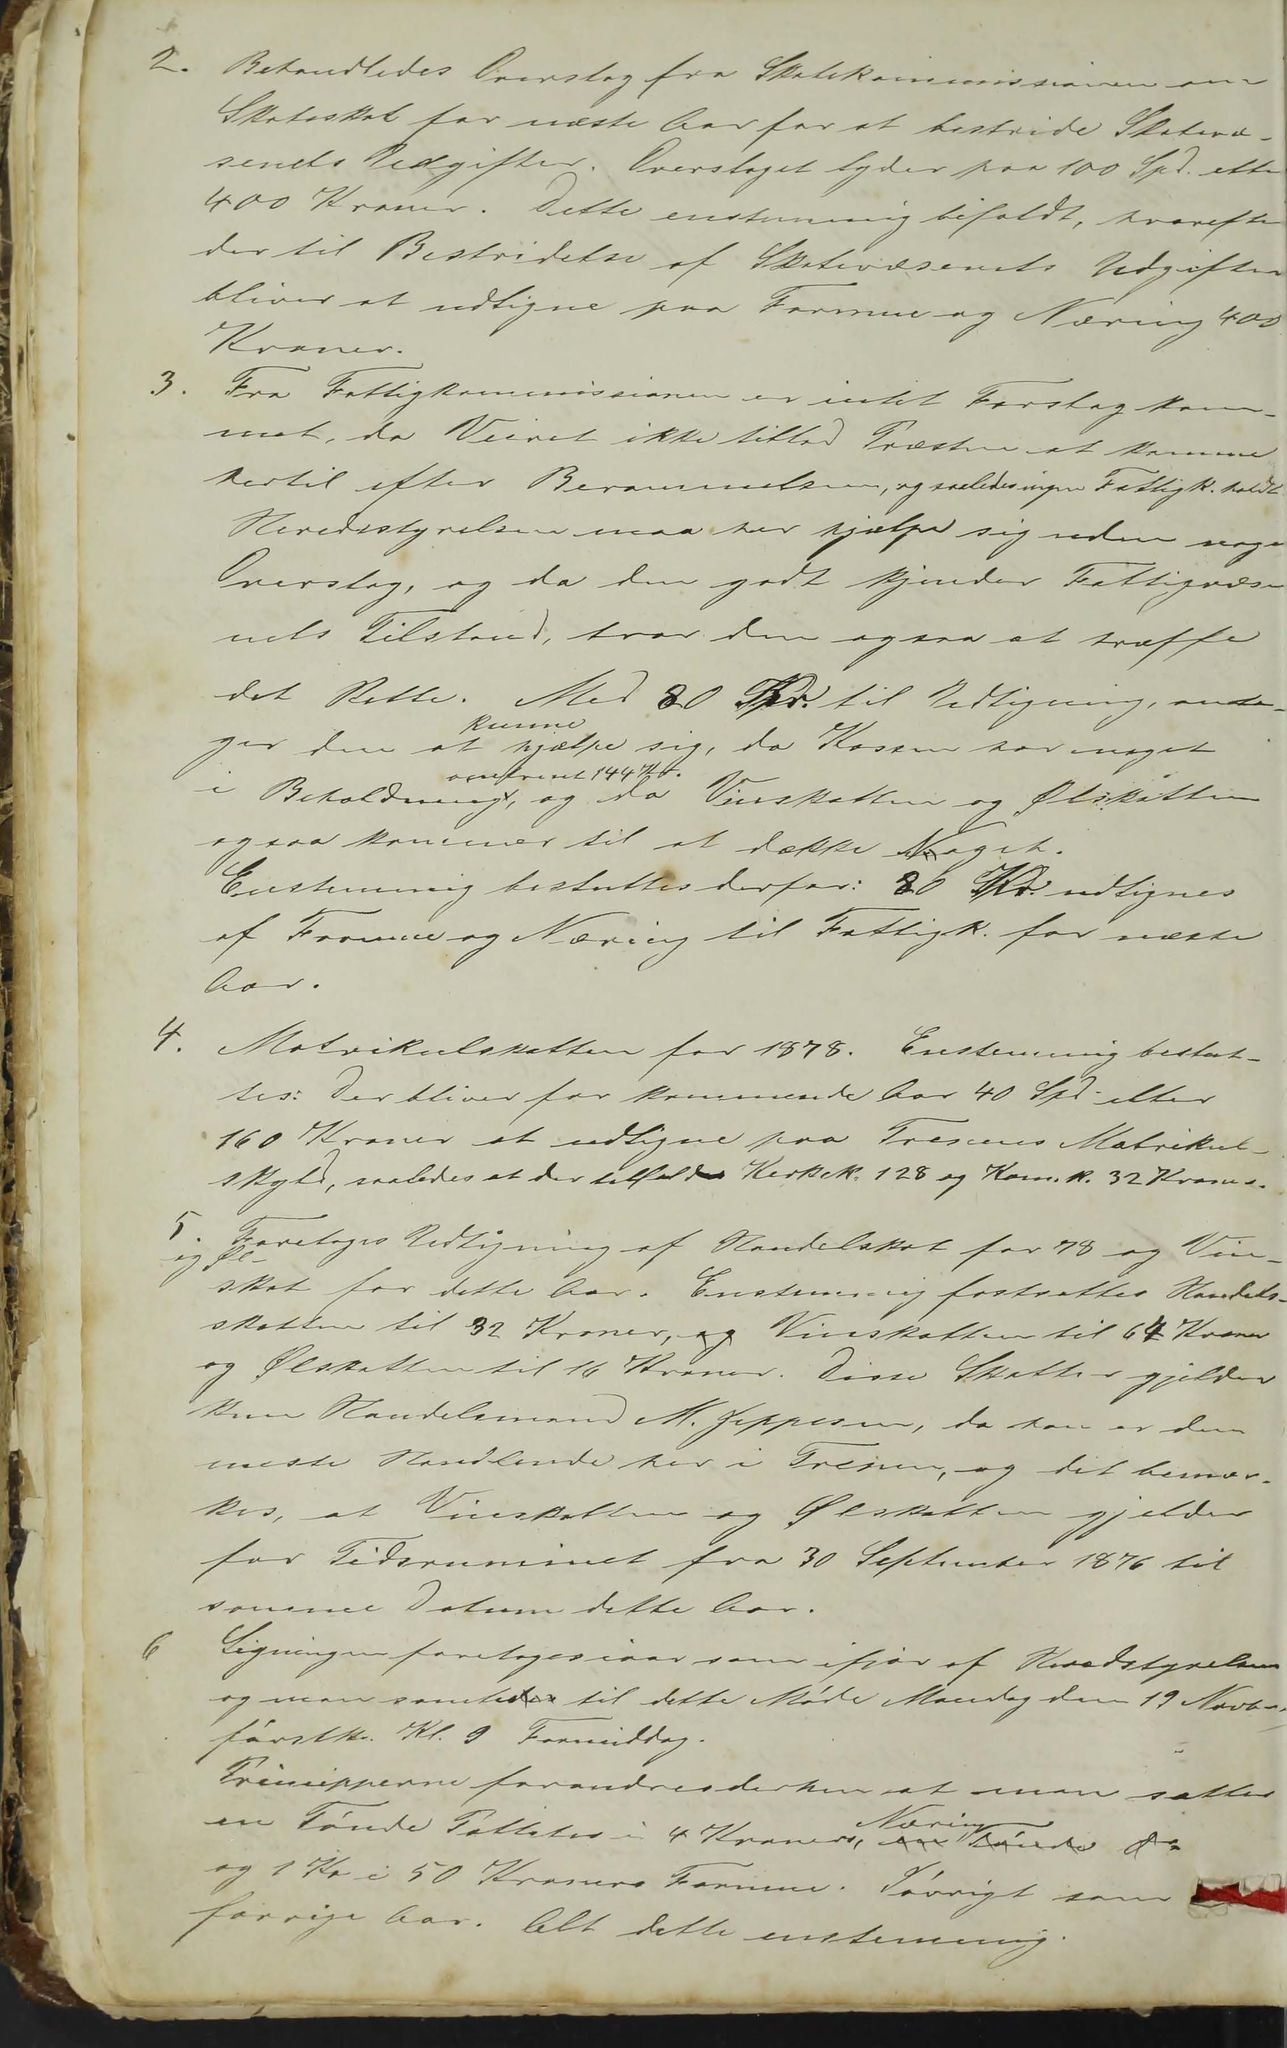 2. Behandledes Overslag fra Skolekommissionen om
Skoleskat for næste Aar for at bestride Skolevæ-
senets Udgifter. Overslaget lyder paa 100 Spd. eller
400 Kroner. Dette enstemmig bifaldt, hvorefter
der til Bestridelse af Skolevæsenets Udgifter
bliver at udligne paa Formue og Næring 400
Kroner.
3. Fra Fattigkommissionen er intet Forslag kom-
met, da Veiret ikke tillod Præsten at komme
hertil efter Berammelsen, og saaledes ingen Fattigk. holdt
Heredsstyrelsen maa her hjælpe sig uden noget
Overslag, og da den godt kjender Fattigvæse
nets Tilstand, tror den ogsaa at træffe
det Rette. Med 80 Kr. til Udligning, anta-
ger den at kunne hjælpe sig, da Kassen har noget
i Beholdning, omtrent 144 Kr. og da Vinskatten og Ølskatten
ogsaa kommer til at dække Noget.
Enstemmig besluttes derfor: 80 Kr. udlignes
af Formue og Næring til Fattigk. for næste
Aar.
4. Matrikulskatten for 1878. Enstemmig beslut-
tes: Der bliver for kommende Aar 40 Spd. eller
160 Kroner at udligne paa Trænens Matrikul-
skyld, saaledes at der tilfalder Kirkek. 128 og Kom.k. 32 Kroner.
5. Foretoges Udligning af Handelskat for 78 og Vin-
og Øl-
skat for dette Aar. Enstemmig fastsattes Handels-
skatten til 32 Kroner, og Vinskatten til 64 Kroner
og Ølskatten til 16 Kroner. Disse Skatter gjelder
kun Handelsmand M. Jeppesen, da han er den
meste Handlende her i Trænen, og det bemær-
kes, at Vinskatten og Ølskatten gjelder
for Tidsrummet fra 30 September 1876 til
samme Datum dette Aar.
6 Ligningen foretoges iaar som ifjor af Heredstyrelsen
og man samledes til dette Møde Mandag den 19 Novbr
førstk. Kl. 9 Formiddag.
Principperne forandres derhen at man sætter
en Tønde Potteter i 4 Kroners, Næring en Tønde
og 1 Ko i 50 Kroners Formue. Iøvrigt som
forrige Aar. Alt dette enstemmig.